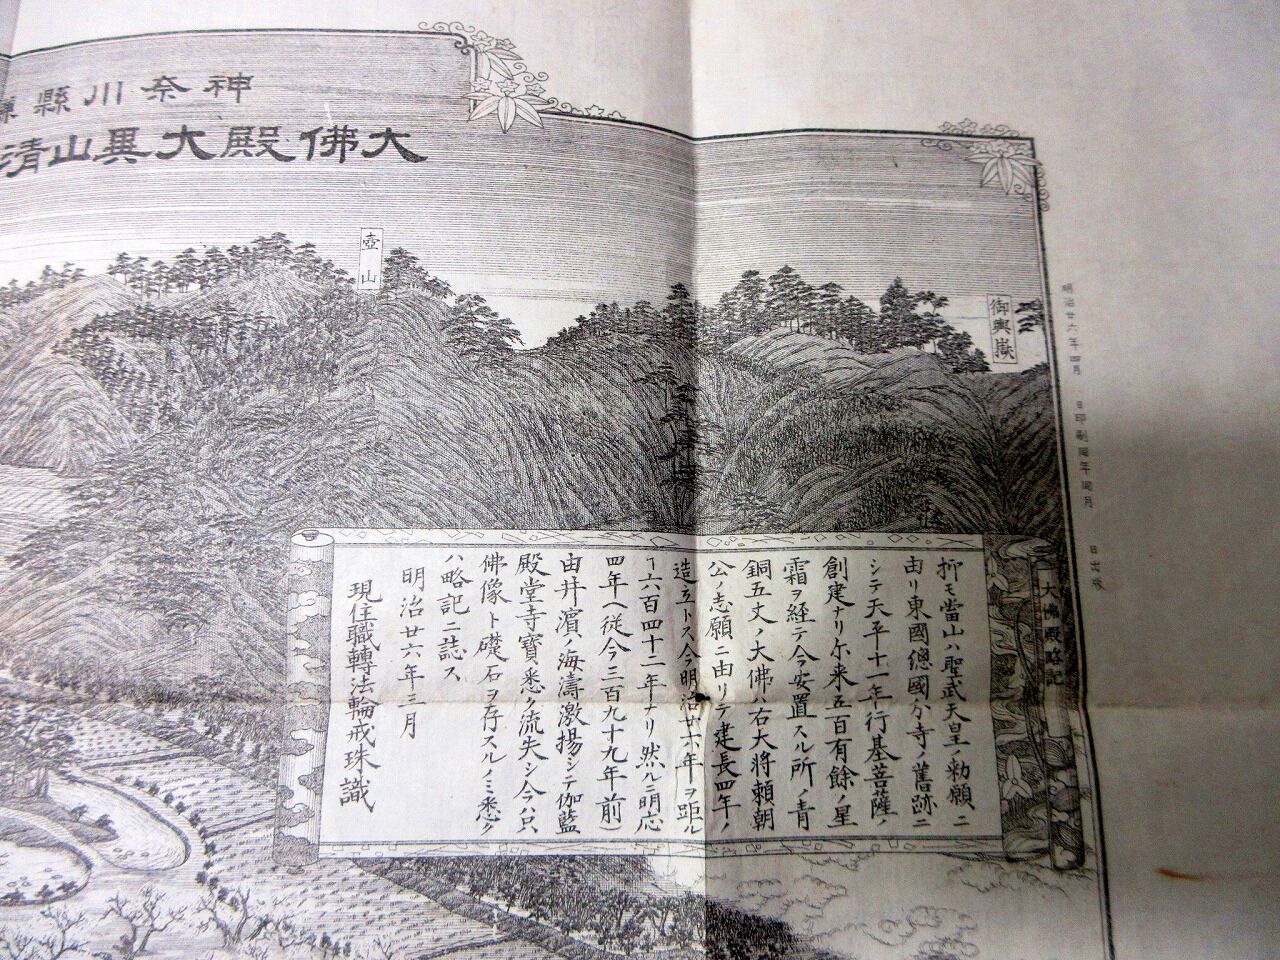 神奈川縣
大佛殿大異山清
壺山
御輿嶽
明治廿六年四月　日印刷同年同月　日出版
大佛殿略記
抑モ當山ハ聖武天皇ノ勅願ニ
由リ東國總國分寺ノ舊跡ニ
シテ天平十一年行基菩薩ノ
創建ナリ尓来五百有餘ノ星
霜ヲ経テ今安置スル所ノ青
銅五丈ノ大佛ハ右大将頼朝
公ノ志願ニ由リテ建長四年ノ
造立トス今明治廿六年ヲ距ル
ヿ六百四十二年ナリ然ルニ明応
四年（従今三百九十九年前）
由井濵ノ海濤激揚シテ伽藍
殿堂寺寶悉ク流失シ今只
佛像ト礎石ヲ存スルノミ悉ク
ハ略記ニ誌ス
明治廿六年三月
現住職轉法輪戒珠識